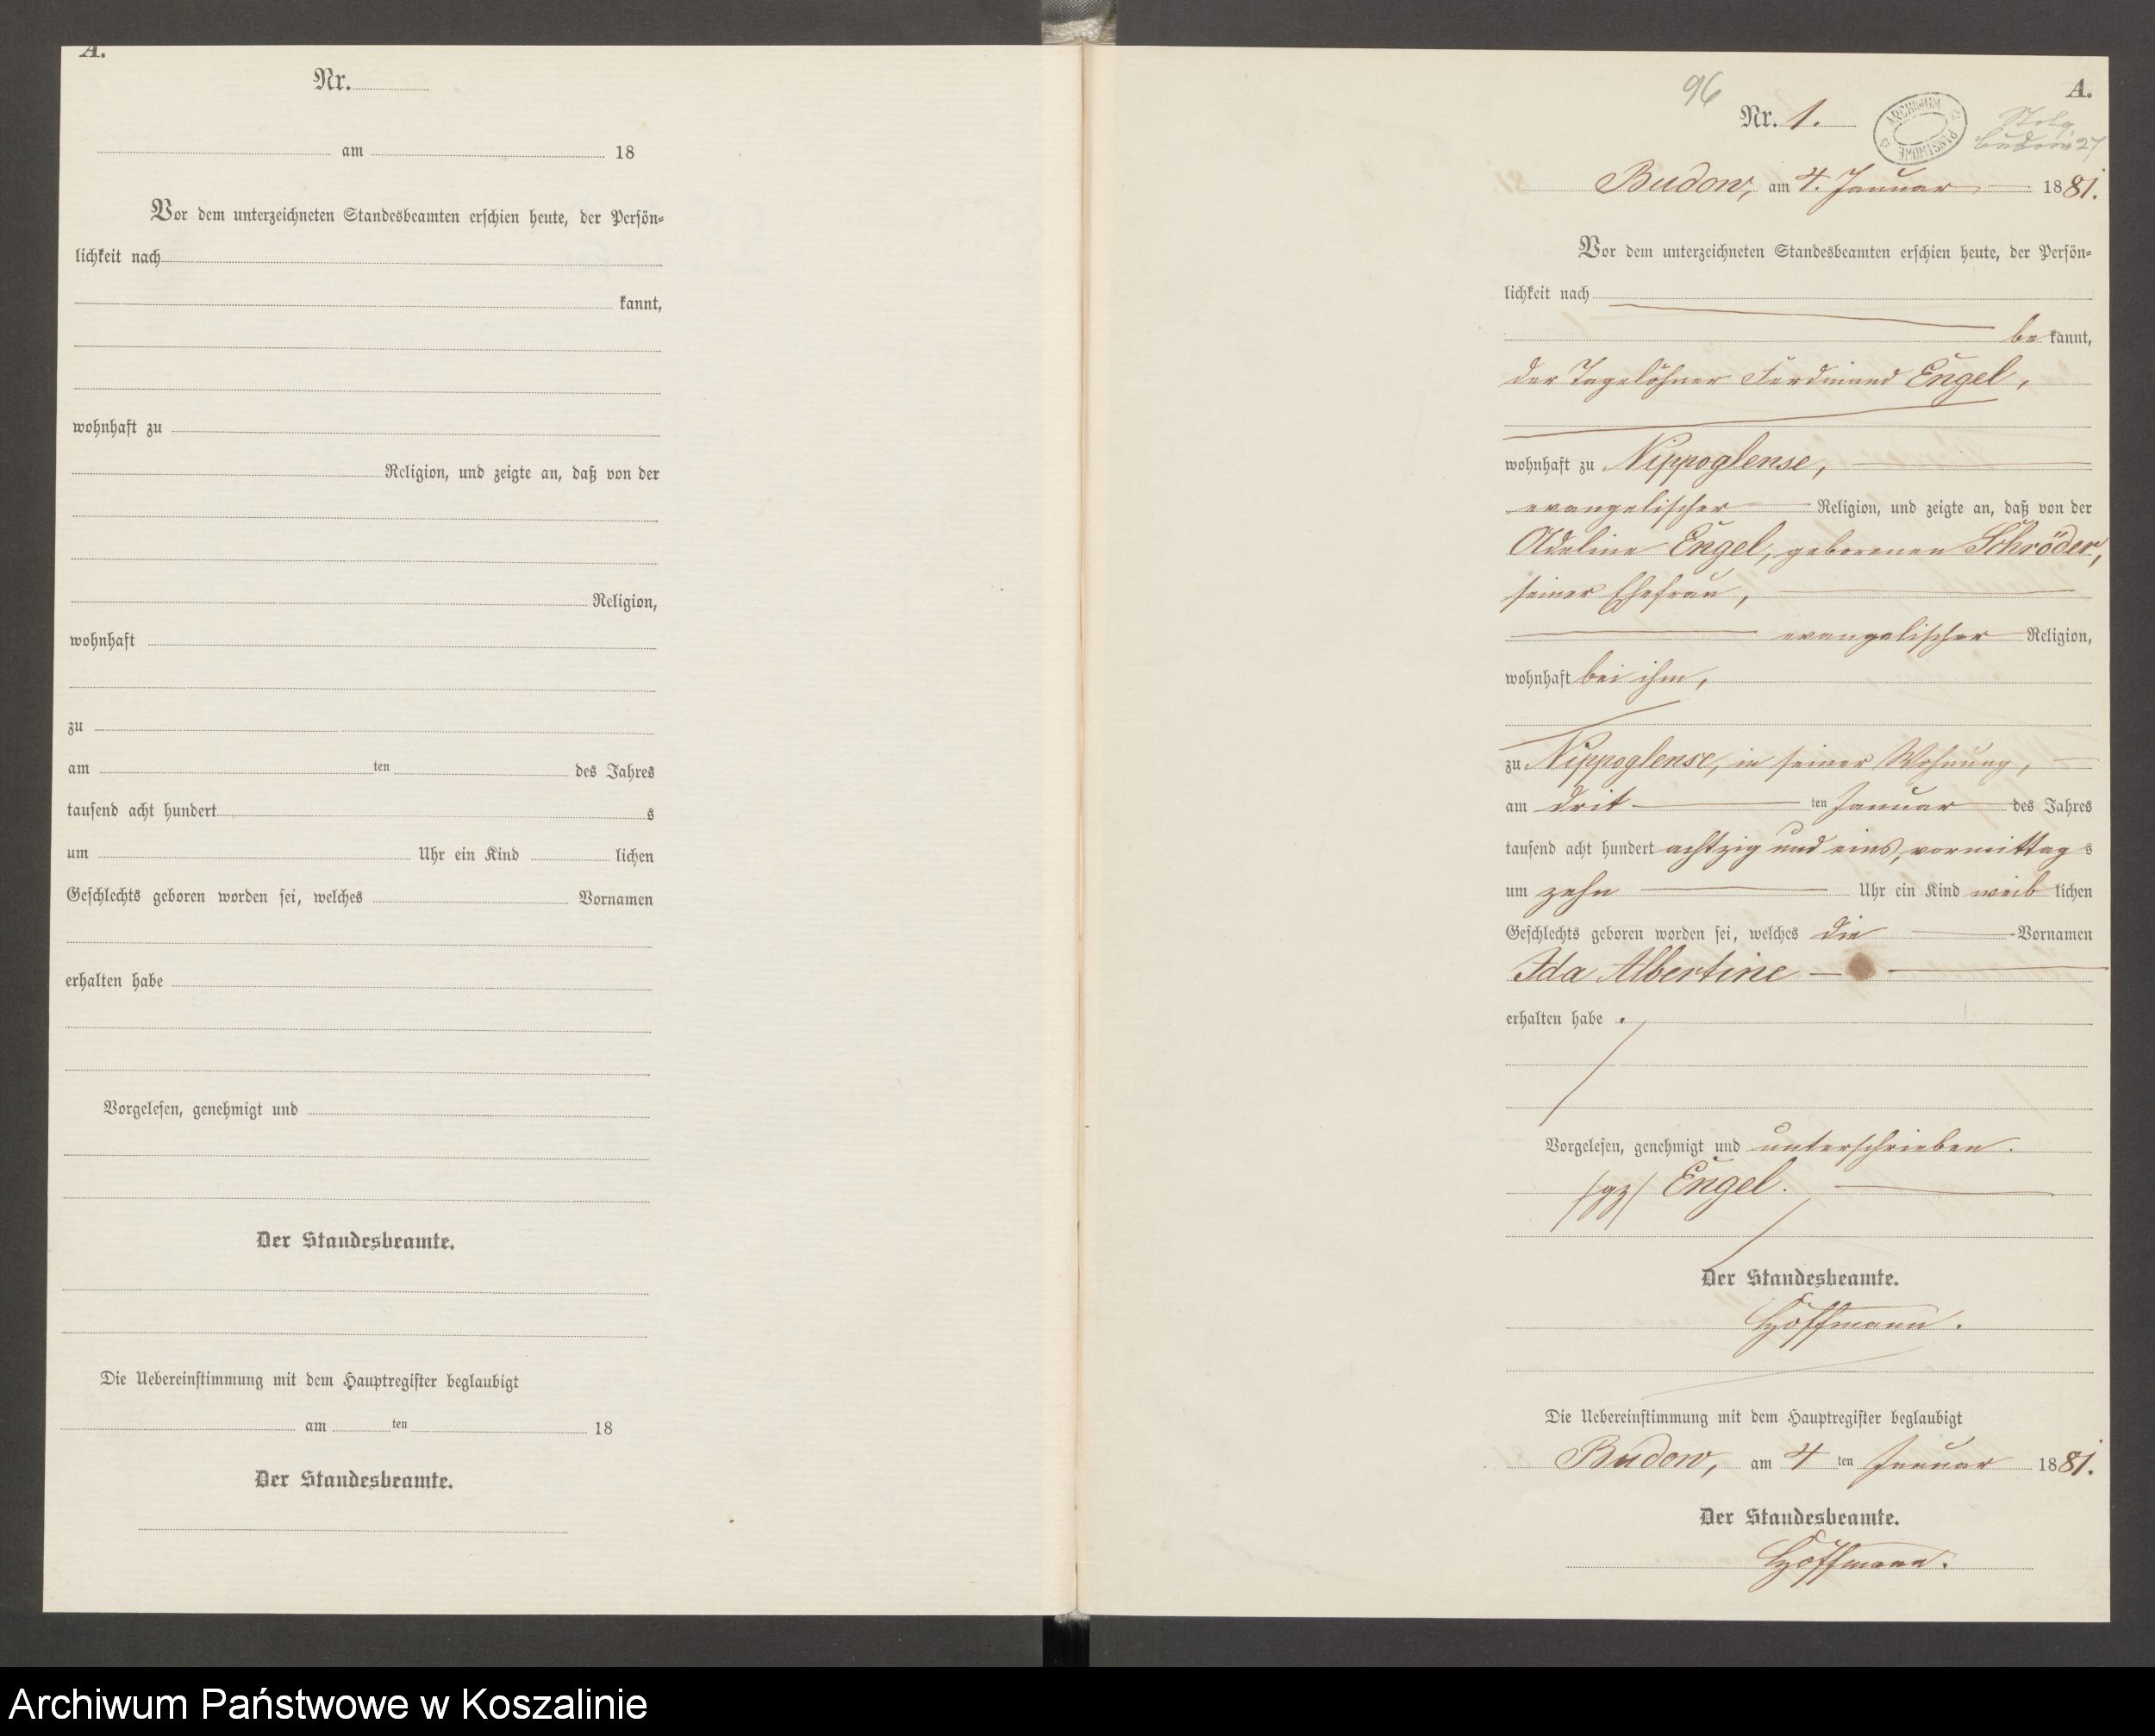 A.
Nr.
am 18
Vor dem unterzeichneten Standesbeamten erschien heute, der Persön=
lichkeit nach
kannt,
wohnhaft zu
Religion, und zeigte an, daß von der
Religion,
wohnhaft
zu
am ten des Jahres
tausend acht hundert s
um Uhr ein Kind lichen
Geschlechts geboren worden sei, welches Vornamen
erhalten habe
Vorgelesen, genehmigt und
Der Standesbeamte.
Die Uebereinstimmung mit dem Hauptregister beglaubigt
am ten 18
Der Standesbeamte.
96
A.
Nr. 1.
ARCHIWUM PAŃSTWOWE
Budow, am 4. Januar 1881.
Vor dem unterzeichneten Standesbeamten erschien heute, der Persön=
lichkeit nach
be kannt,
der Tagelöhner Ferdinand Engel,
wohnhaft zu Nippoglense,
evangelischer Religion, und zeigte an, daß von der
Adeline Engel, geborenen Schröder,
seiner Ehefrau,
evangelischer Religion,
wohnhaft bei ihm,
zu Nippoglense, in seiner Wohnung,
am drit ten Januar des Jahres
tausend acht hundert achtzig und eins, vormittag s
um zehn Uhr ein Kind weib lichen
Geschlechts geboren worden sei, welches die Vornamen
Ida Albertine
erhalten habe.
Vorgelesen, genehmigt und unterschrieben.
/gz/ Engel.
Der Standesbeamte.
Hoffmann.
Die Uebereinstimmung mit dem Hauptregister beglaubigt
Budow, am 4 ten Januar 1881.
Der Standesbeamte.
Hoffmann.
Archiwum Państwowe w Koszalinie